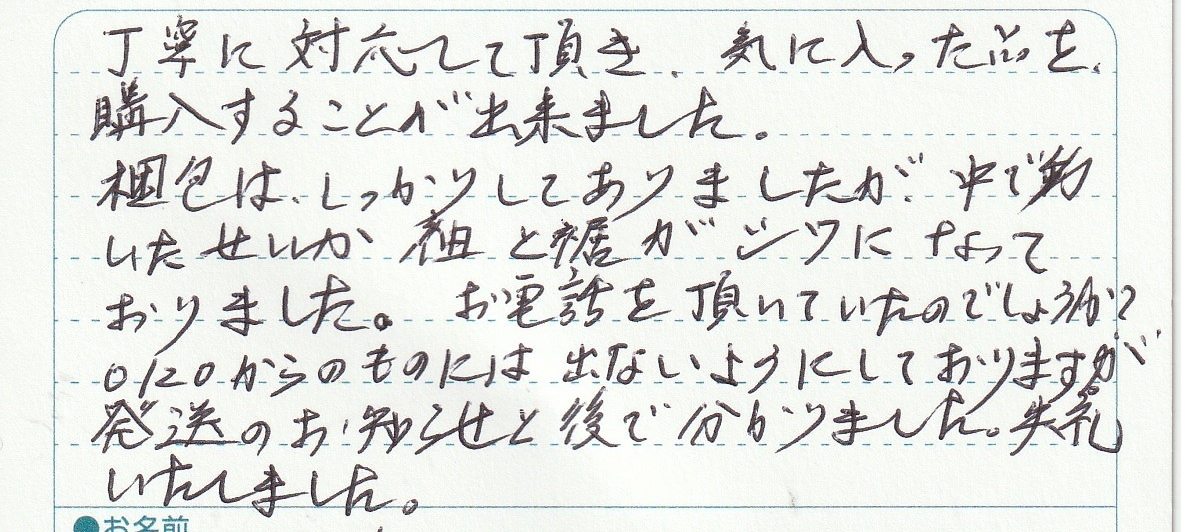 丁寧に対応して頂き、気に入った品を、
購入することが出来ました。
梱包は、しっかりしてありましたが、中で動
いたせいか 袖と裾がシワになって
おりました。 お電話を頂いていたのでしょうか?
0120からのものには出ないようにしておりますが、
発送のお知らせと後で分かりました。失礼
いたしました。
●お名前